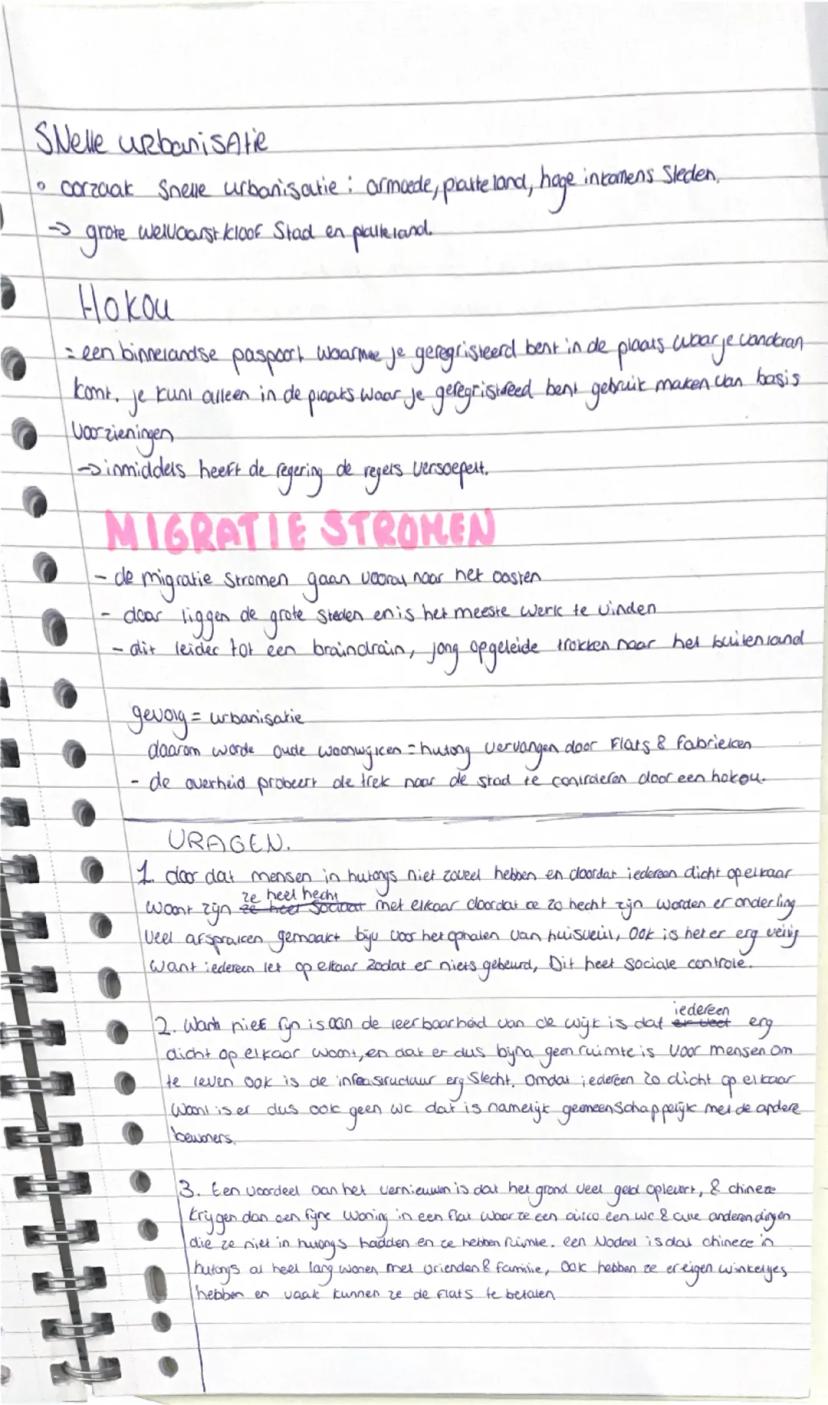 SNelle urbanisatie
° oorzaak snelle urbanisatie : armoede, platteland, hoge inkomens steden.
-> grote welvaarstkloof Stad en platteland.
Hokou
= een binnelandse paspoort waarmee je geregristeerd bent in de plaats waar je vandaan
komt. je kunt alleen in de plaats waar je geregristreed bent gebruik maken van basis
voorzieningen
-> inmiddels heeft de regering de regels versoepelt.
MIGRATIE STROMEN
- de migratie stromen gaan vooral naar het oosten
- daar liggen de grote steden en is het meeste werk te vinden
- dit leider tot een braindrain, jong opgeleide trokken naar het buitenland
gevolg = urbanisatie
daarom worde oude woonwijken = hutong vervangen door flats & fabrieken
- de overheid probeert de trek naar de stad te controleren door een hokou.
VRAGEN.
1. door dat mensen in hutongs niet zoveel hebben en doordat iedereen dicht op elkaar
woont zijn ze heel hecht met elkaar doordat ze zo hecht zijn worden er onderling
veel afspraken gemaakt bijv voor het ophalen van huisvuil, ook is het er erg veilig
want iedereen let op elkaar zodat er niets gebeurd, Dit heet sociale controle.
2. Wat niet fijn is aan de leefbaarheid van de wijk is dat iedereen erg
dicht op elkaar woont, en dat er dus bijna geen ruimte is voor mensen om
te leven ook is de infrastructuur erg slecht. Omdat iedereen zo dicht op elkaar
woont is er dus ook geen wc dat is namelijk gemeenschappelijk met de andere
bewoners.
3. Een voordeel aan het vernieuwen is dat het grond veel geld oplevert, & chineze
krijgen dan een fijne woning in een flat waar ze een airco een wc & alle anderen dingen
die ze niet in hutongs hadden en ze hebben ruimte. een Nadeel is dat chineze in
hutongs al heel lang wonen met vrienden & familie, ook hebben ze er eigen winkeltjes
hebben en vaak kunnen ze de flats te betalen